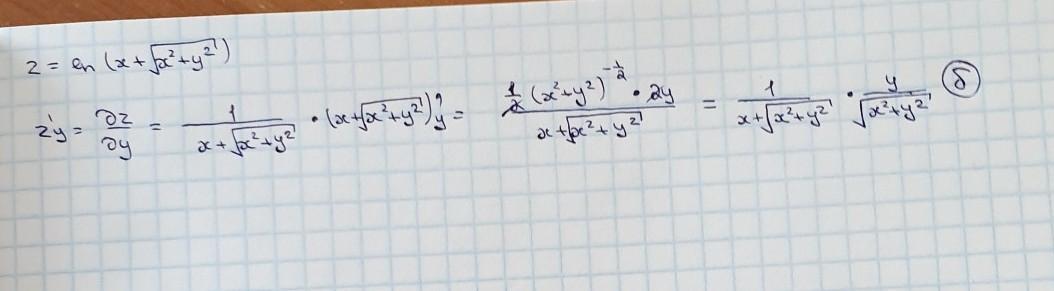 z = ln (x + √(x² + y²))
z'y = ∂z/∂y = 1/(x + √(x² + y²)) · (x + √(x² + y²))'y = (1/2 (x² + y²)^(-1/2) · 2y)/(x + √(x² + y²)) = 1/(x + √(x² + y²)) · y/√(x² + y²) б